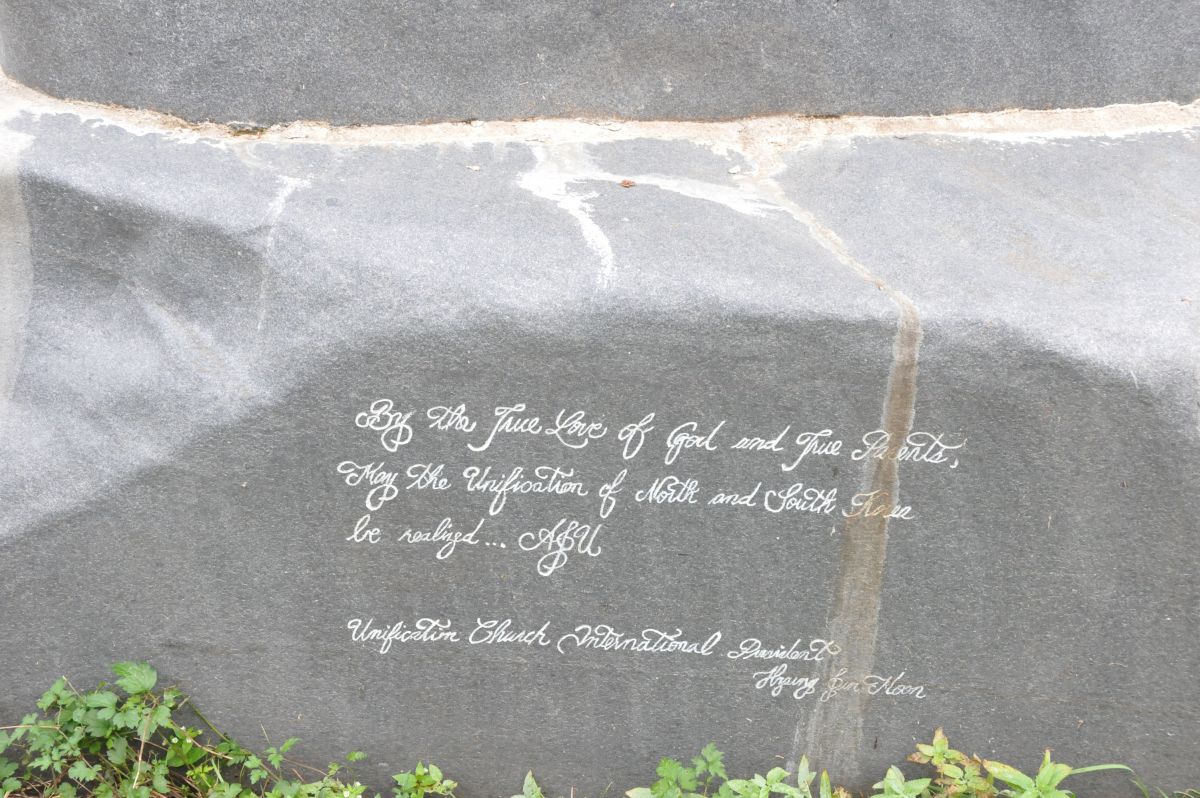 By the True Love of God and True Parents,
May the Unification of North and South Korea
be realized... AJU
Unification Church International President
Hyung Jin Moon